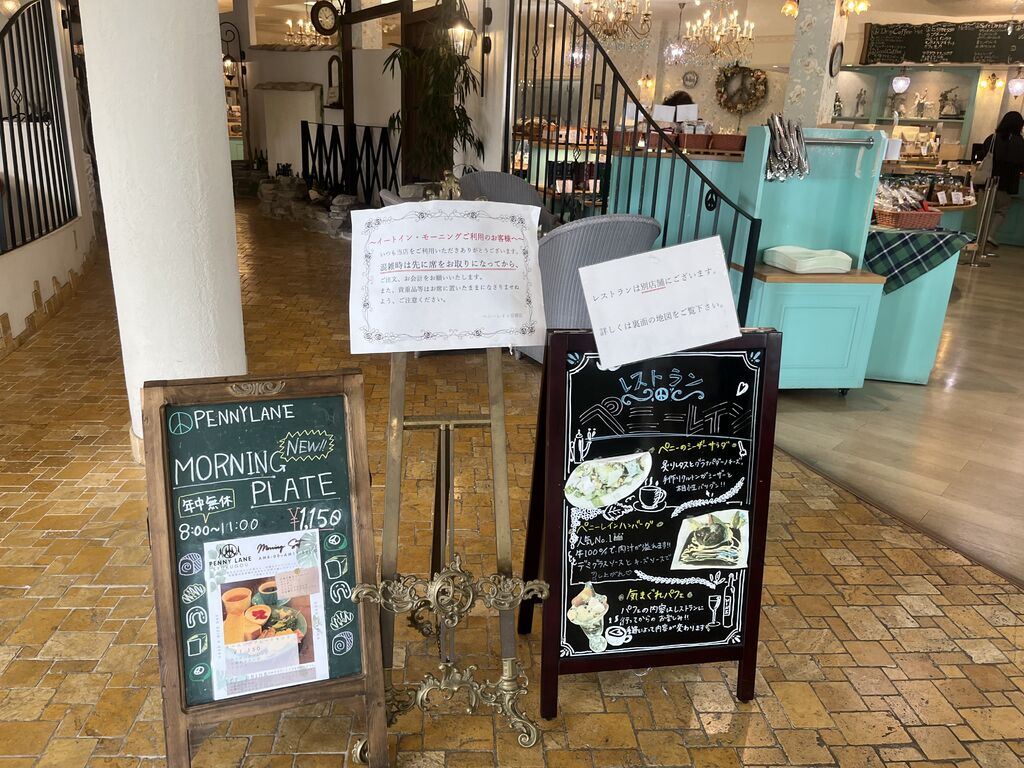 ~イートイン・モーニングご利用のお客様へ~
いつも当店をご利用いただきありがとうございます。
混雑時は先に席をお取りになってから、
ご注文、お会計をお願いいたします。
また、貴重品等はお席に置いたままになさりませぬ
よう、ご注意ください。
レストランは別店舗にございます。
詳しくは裏面の地図をご覧下さい。
PENNYLANE
NEW!!
MORNING
PLATE
年中無休
8:00~11:00
¥1,150
PENNY LANE
レストラン
ペニーレイン
ペニーのシーザーサラダ
相性バツグン!!
ペニーレインハンバーグ
人気No.1
牛100%で肉汁が溢れます!!
デミグラスソースとチーズソースで
気まぐれパフェ
パフェの内容はレストランに
お楽しみ!!
内容が変わります